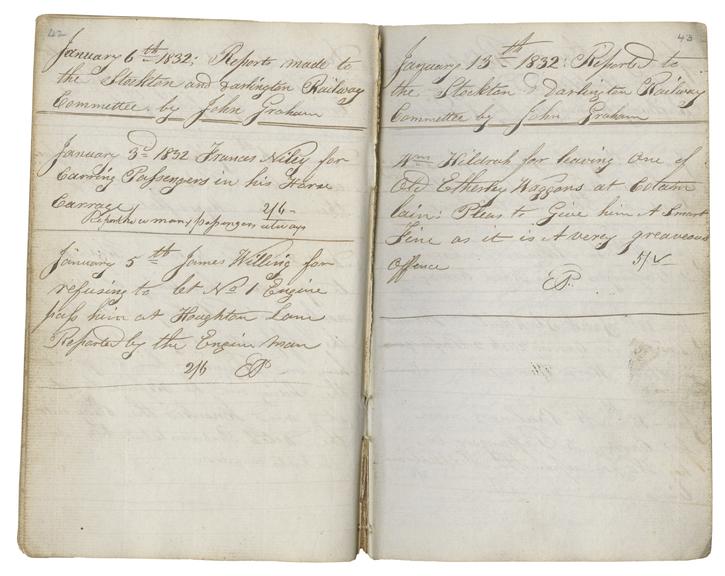 42
January 6th 1832: Reports made to
the Stockton and Darlington Railway
Committee by John Graham
January 3d 1832 Francis Niley for
Carring Passengers in his Horse
Carrage 2/6-
Report how many passengers always
January 5th James Willing for
refusing to let No 1 Engine
pass him at Houghton Lane
Reported by the Engine man
2/6 EP.
43
January 13th 1832: Reported to
the Stockton & Darlington Railway
Committee by John Graham
Wm Hildrah for leaving one of
Old Etherley Waggons at Cotam
lain: Pleas to Give him A Smart
Fine as it is A very greaveous
Offence 5/
EP.